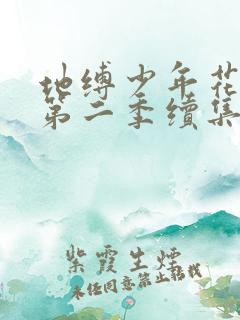 地缚少年花
第二季續集
紫霞生煙
未经同意禁止转载